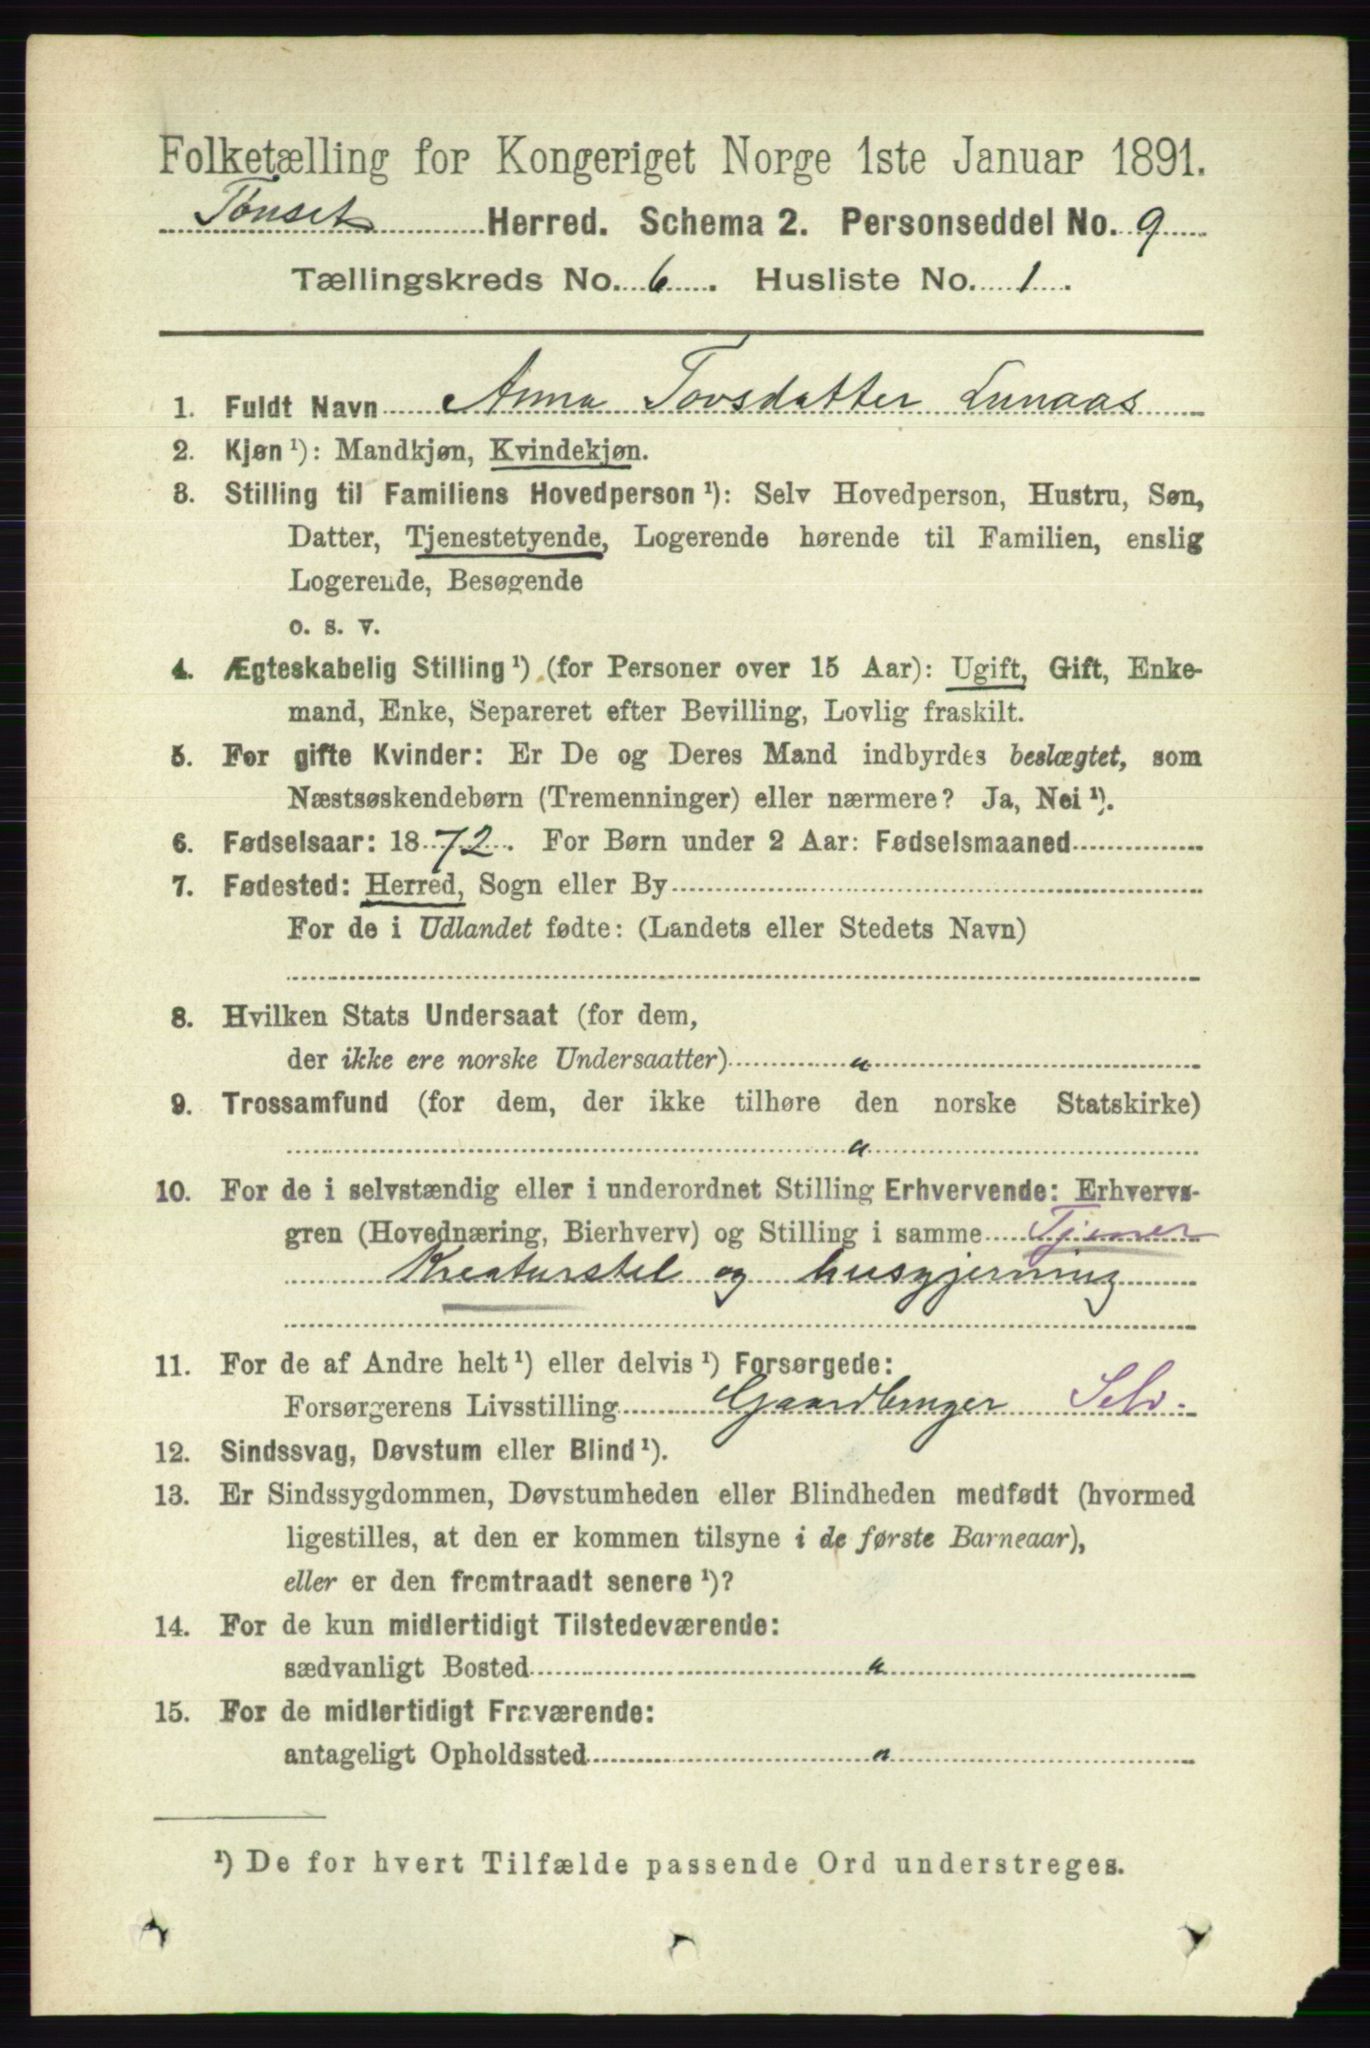 Folketælling for Kongeriget Norge 1ste Januar 1891.
Tønset Herred. Schema 2. Personseddel No. 9
Tællingskreds No. 6. Husliste No. 1.
1. Fuldt Navn Anna Tovsdatter Lunaas
2. Kjøn ¹): Mandkjøn, Kvindekjøn.
3. Stilling til Familiens Hovedperson ¹): Selv Hovedperson, Hustru, Søn,
Datter, Tjenestetyende, Logerende hørende til Familien, enslig
Logerende, Besøgende
o. s. v.
4. Ægteskabelig Stilling ¹) (for Personer over 15 Aar): Ugift, Gift, Enke-
mand, Enke, Separeret efter Bevilling, Lovlig fraskilt.
5. For gifte Kvinder: Er De og Deres Mand indbyrdes beslægtet, som
Næstsøskendebørn (Tremenninger) eller nærmere? Ja, Nei ¹).
6. Fødselsaar: 1872. For Børn under 2 Aar: Fødselsmaaned
7. Fødested: Herred, Sogn eller By
For de i Udlandet fødte: (Landets eller Stedets Navn)
8. Hvilken Stats Undersaat (for dem,
der ikke ere norske Undersaatter) "
9. Trossamfund (for dem, der ikke tilhøre den norske Statskirke)
"
10. For de i selvstændig eller i underordnet Stilling Erhvervende: Erhvervs-
gren (Hovednæring, Bierhverv) og Stilling i samme Tjener
Kreaturstel og husgjerning
11. For de af Andre helt ¹) eller delvis ¹) Forsørgede:
Forsørgerens Livsstilling Gaardbruger Selv.
12. Sindssvag, Døvstum eller Blind ¹).
13. Er Sindssygdommen, Døvstumheden eller Blindheden medfødt (hvormed
ligestilles, at den er kommen tilsyne i de første Barneaar),
eller er den fremtraadt senere ¹)?
14. For de kun midlertidigt Tilstedeværende:
sædvanligt Bosted "
15. For de midlertidigt Fraværende:
antageligt Opholdssted "
¹) De for hvert Tilfælde passende Ord understreges.